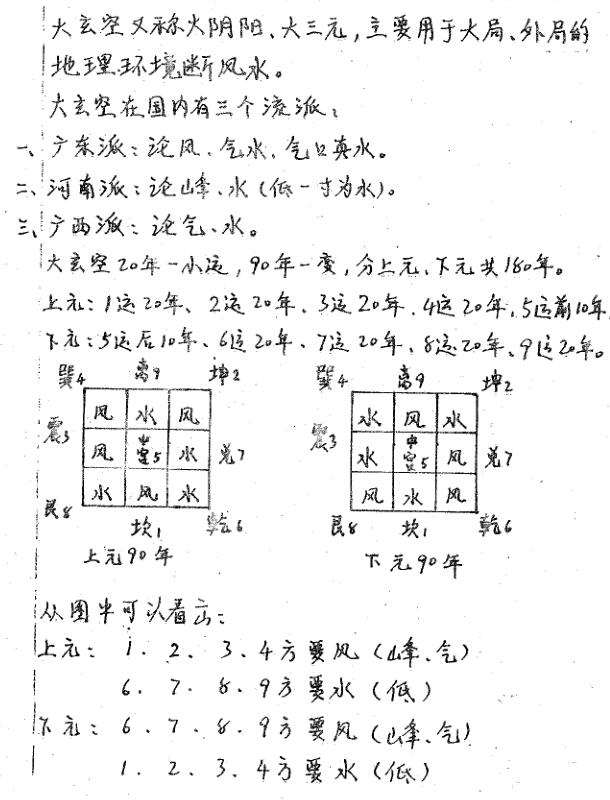 大玄空又称大阴阳、大三元,主要用于大局、外局的
地理环境断风水。
大玄空在国内有三个流派:
一、广东派:论风、气水、气口真水。
二、河南派:论峰、水(低一寸为水)。
三、广西派:论气、水。
大玄空20年一小运,90年一变,分上元、下元共180年。
上元:1运20年、2运20年、3运20年、4运20年,5运前10年
下元:5运后10年、6运20年、7运20年、8运20年、9运20年。
巽4 离9 坤2 巽4 离9 坤2
风 水 风 水 风 水
震3 风 中宫5 水 兑7 震3 水 中宫5 风 兑7
水 风 水 风 水 风
艮8 坎1 乾6 艮8 坎1 乾6
上元90年 下元90年
从图中可以看出:
上元:1.2.3.4方要风(峰、气)
6.7.8.9方要水(低)
下元:6.7.8.9方要风(峰、气)
1.2.3.4方要水(低)